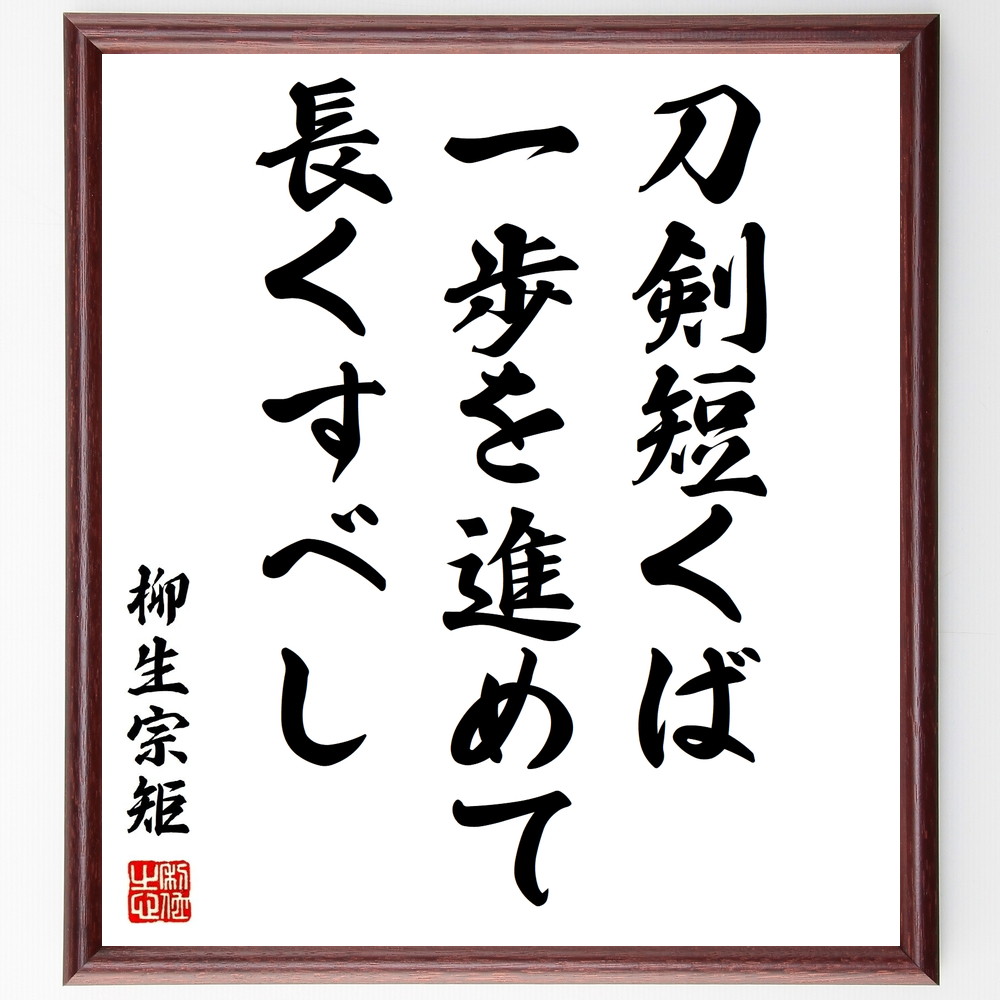 刀剣短くば
一歩を進めて
長くすべし
柳生宗矩